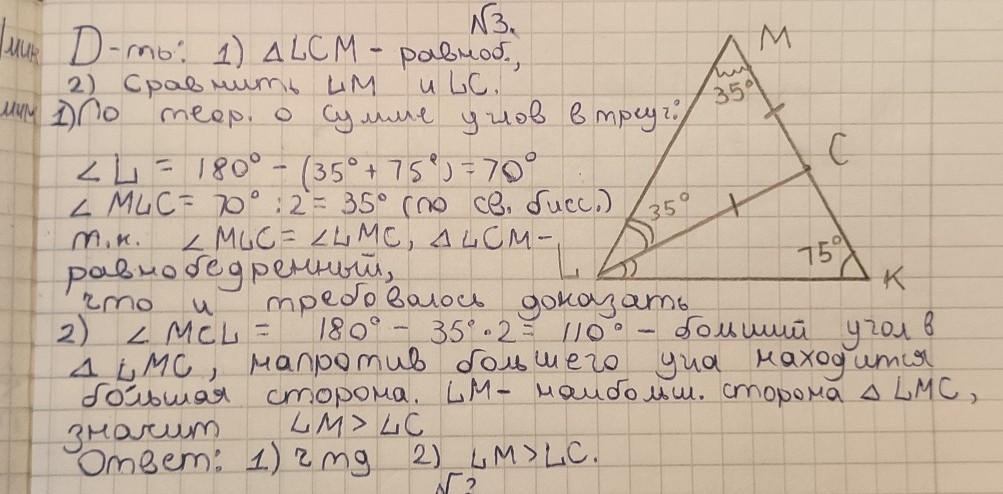 №3.
D-ть: 1) △LCM - равноб.,
2) Сравнить LM и LC.
1) По теор. о сумме углов в треуг:
∠L = 180° - (35° + 75°) = 70°
∠MLC = 70° : 2 = 35° (по св. бисс.)
т.к. ∠MLC = ∠LMC, △LCM -
равнобедренный,
что и требовалось доказать
2) ∠MCL = 180° - 35° · 2 = 110° - больший угол в
△LMC, напротив большего угла находится
большая сторона. LM - наибольш. сторона △LMC,
значит LM > LC
Ответ: 1) чтд 2) LM > LC.
M
35°
C
35°
75°
L
K